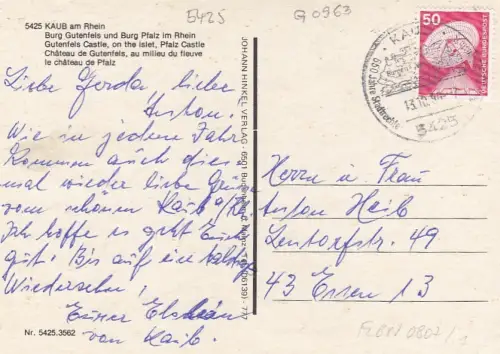 5425
G 0963
5425 KAUB am Rhein
Burg Gutenfels und Burg Pfalz im Rhein
Gutenfels Castle, on the islet, Pfalz Castle
Château de Gutenfels, au milieu du fleuve
le château de Pfalz
Liebe Gerda, lieber
Anton.
Wie in jedem Jahr
kommen auch dies
mal wieder liebe Grüße
vom schönen Kaub a/Rh
Ich hoffe es geht Euch
gut. Bis auf ein baldiges
Wiedersehn,
Eurer
von Kaub.
Nr. 5425.3562
JOHANN HINKEL VERLAG · 6501
50
DEUTSCHE BUNDESPOST
KAUB
650 Jahre Stadtrechte
13.10.
5425
Herrn u. Frau
Anton Heib
49
43 Essen 13